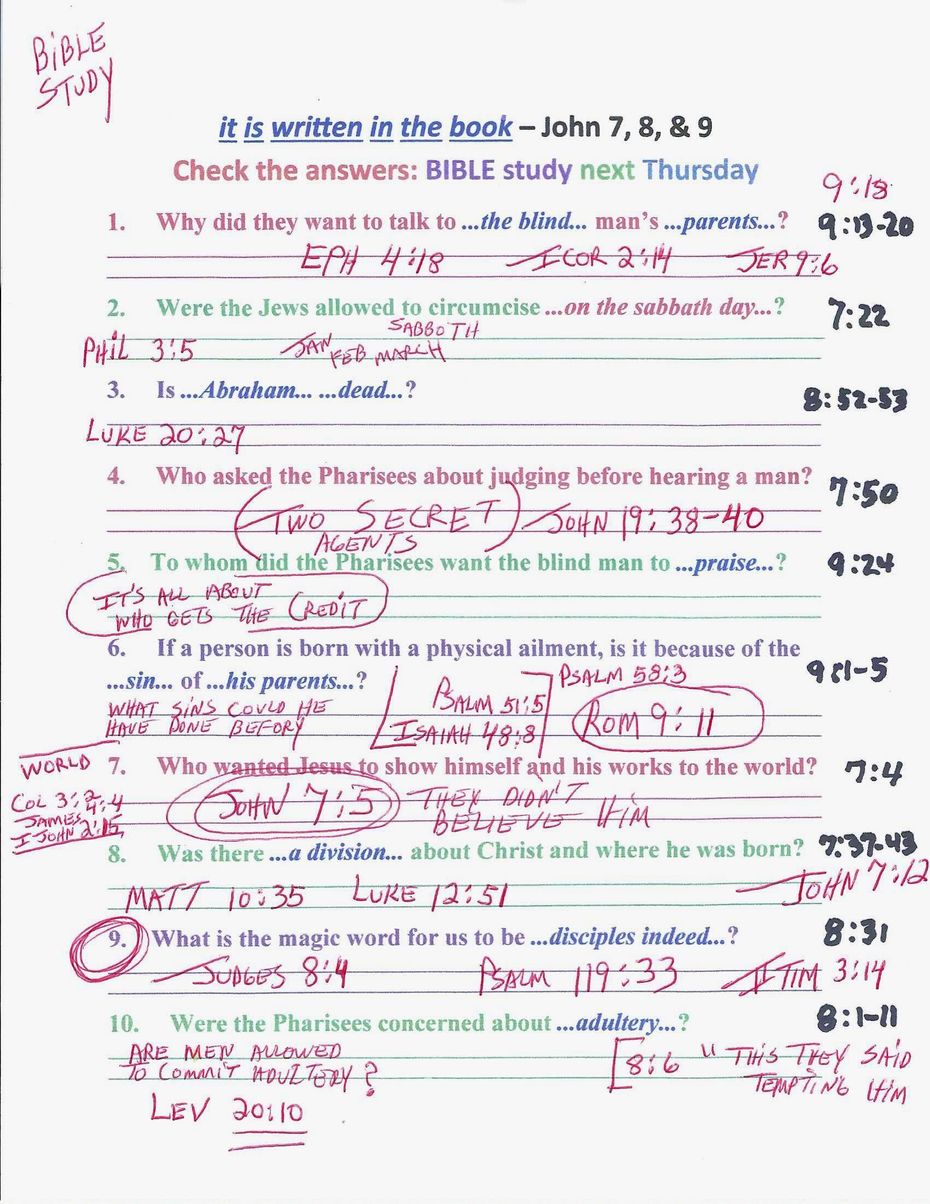 BiBLE
STUDY
it is written in the book – John 7, 8, & 9
Check the answers: BIBLE study next Thursday
9:18
1. Why did they want to talk to ...the blind... man's ...parents...? 9:19-20
EPH 4:18 I COR 2:14 JER 9:6
2. Were the Jews allowed to circumcise ...on the sabbath day...? 7:22
SABBOTH
PHiL 3:5 JAN FEB MARCH
3. Is ...Abraham... ...dead...? 8:52-53
LUKE 20:27
4. Who asked the Pharisees about judging before hearing a man? 7:50
TWO SECRET JOHN 19:38-40
AGENTS
5. To whom did the Pharisees want the blind man to ...praise...? 9:24
IT'S ALL ABOUT
WHO GETS THE CREDIT
6. If a person is born with a physical ailment, is it because of the 9:1-5
...sin... of ...his parents...? PSALM 58:3
WHAT SINS COULD HE PSALM 51:5 ROM 9:11
HAVE DONE BEFORY ISAIAH 48:8
WORLD 7. Who wanted Jesus to show himself and his works to the world? 7:4
COL 3:2 JOHN 7:5 THEY DIDN'T
JAMES 4:4 BELIEVE HiM
I JOHN 2:15
8. Was there ...a division... about Christ and where he was born? 7:37-43
MATT 10:35 LUKE 12:51 JOHN 7:12
9. What is the magic word for us to be ...disciples indeed...? 8:31
JUDGES 8:4 PSALM 119:33 II TIM 3:14
10. Were the Pharisees concerned about ...adultery...? 8:1-11
ARE MEN ALLOWED [8:6 "THIS THEY SAiD
TO COMMiT ADULTERY? TEMPTiNG HiM
LEV 20:10